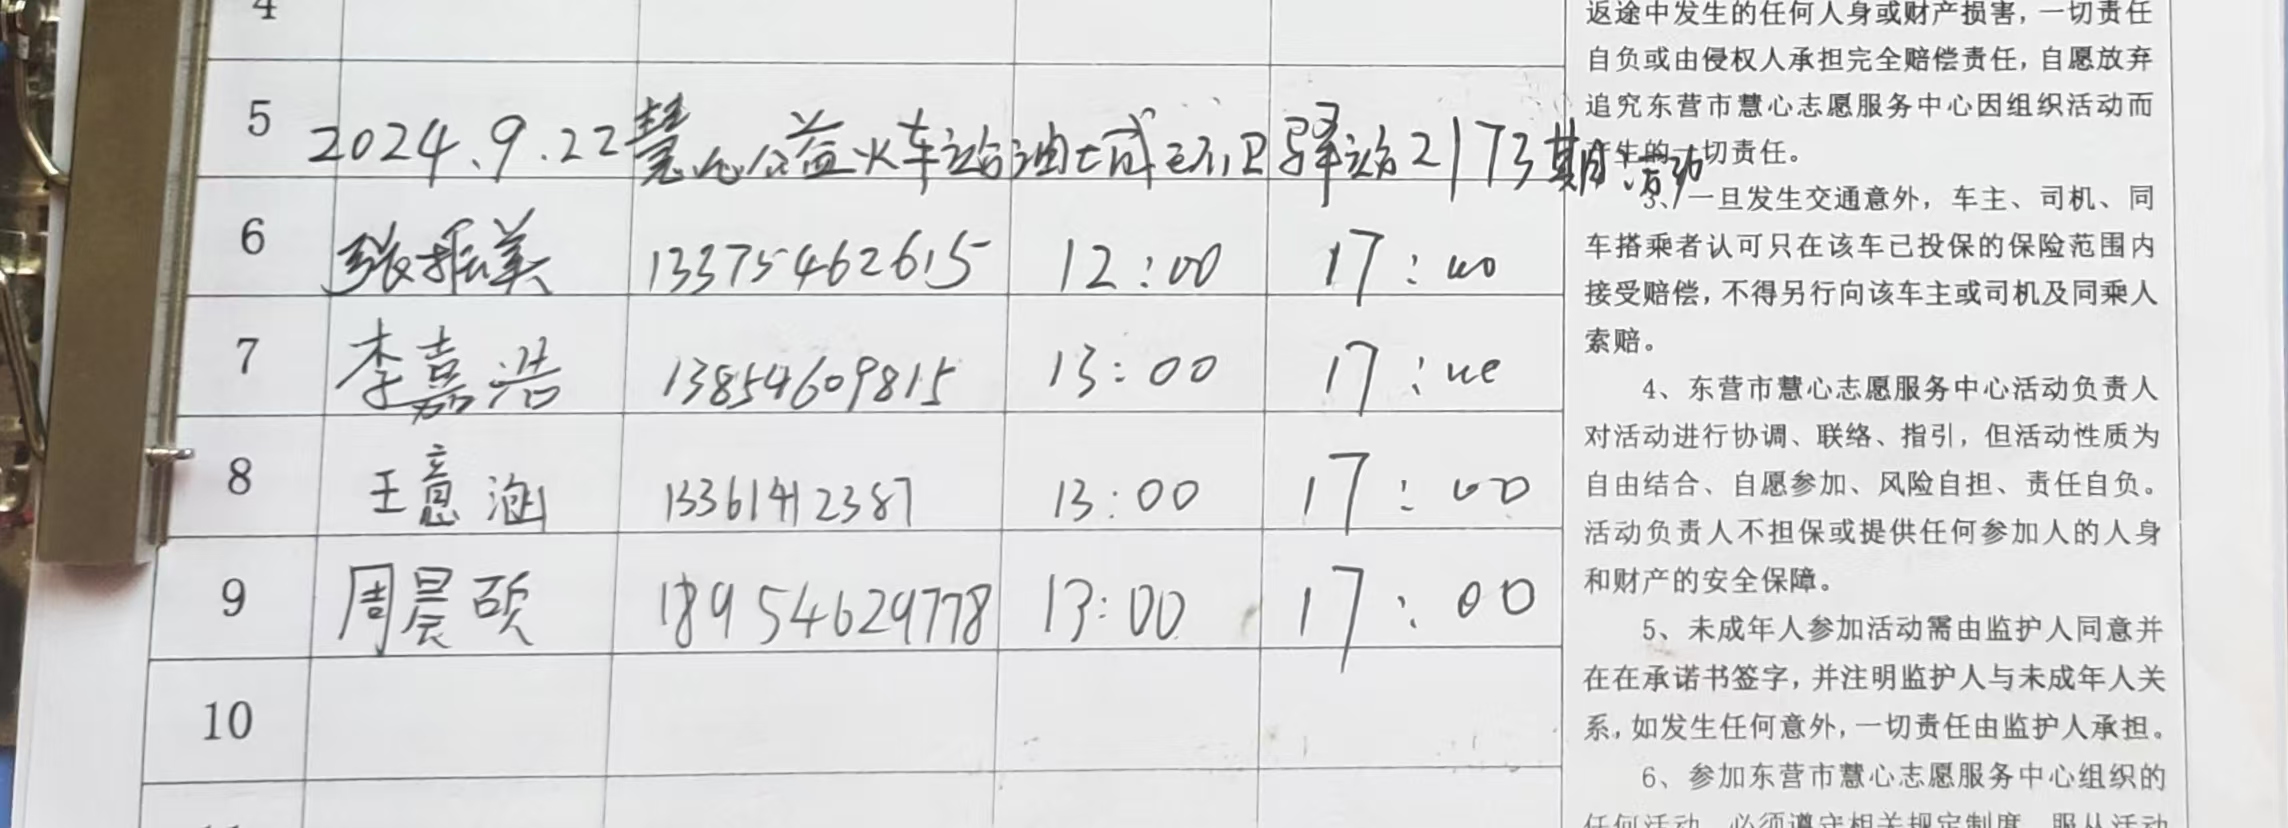 4
5 2024.9.22慧心公益火车站油城环卫驿站2173期活动
6 张振美 13375462615 12:00 17:00
7 李嘉浩 13854609815 13:00 17:00
8 王意涵 13361412387 13:00 17:00
9 周晨硕 18954629778 13:00 17:00
10
返途中发生的任何人身或财产损害，一切责任
自负或由侵权人承担完全赔偿责任，自愿放弃
追究东营市慧心志愿服务中心因组织活动而
产生的一切责任。
3、一旦发生交通意外，车主、司机、同
车搭乘者认可只在该车已投保的保险范围内
接受赔偿，不得另行向该车主或司机及同乘人
索赔。
4、东营市慧心志愿服务中心活动负责人
对活动进行协调、联络、指引，但活动性质为
自由结合、自愿参加、风险自担、责任自负。
活动负责人不担保或提供任何参加人的人身
和财产的安全保障。
5、未成年人参加活动需由监护人同意并
在在承诺书签字，并注明监护人与未成年人关
系，如发生任何意外，一切责任由监护人承担。
6、参加东营市慧心志愿服务中心组织的
任何活动，必须遵守相关规定制度，服从活动